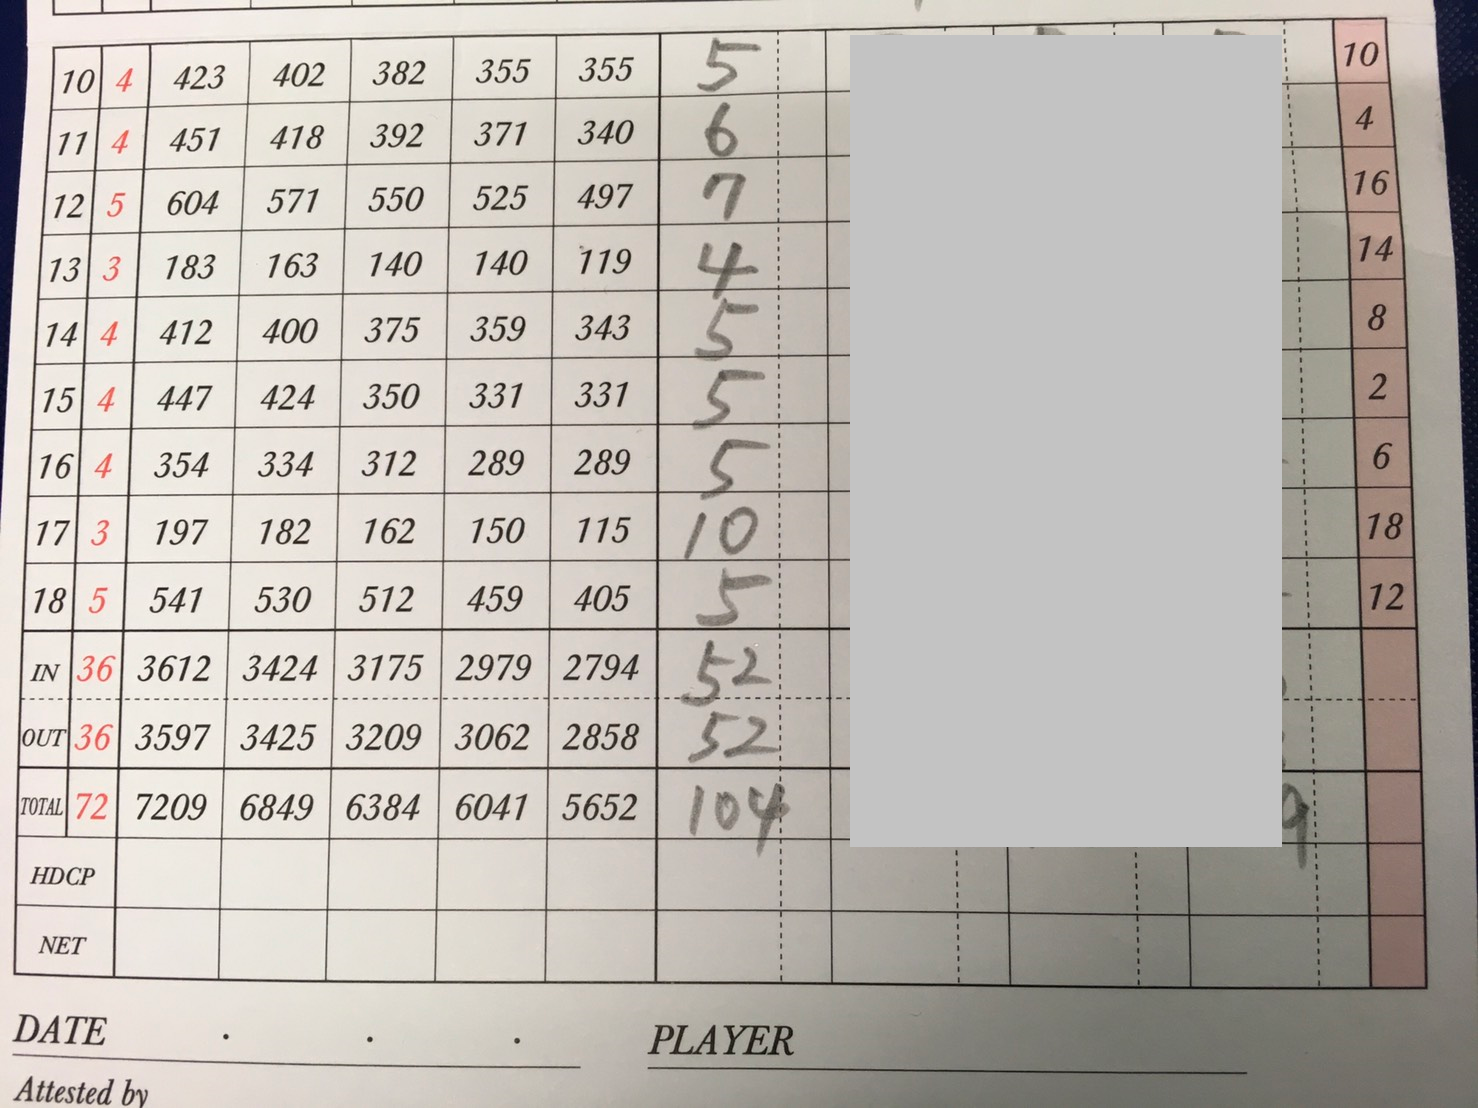 10 4 423 402 382 355 355 5 10
11 4 451 418 392 371 340 6 4
12 5 604 571 550 525 497 7 16
13 3 183 163 140 140 119 4 14
14 4 412 400 375 359 343 5 8
15 4 447 424 350 331 331 5 2
16 4 354 334 312 289 289 5 6
17 3 197 182 162 150 115 10 18
18 5 541 530 512 459 405 5 12
IN 36 3612 3424 3175 2979 2794 52
OUT 36 3597 3425 3209 3062 2858 52
TOTAL 72 7209 6849 6384 6041 5652 104 9
HDCP
NET
DATE . . . PLAYER
Attested by